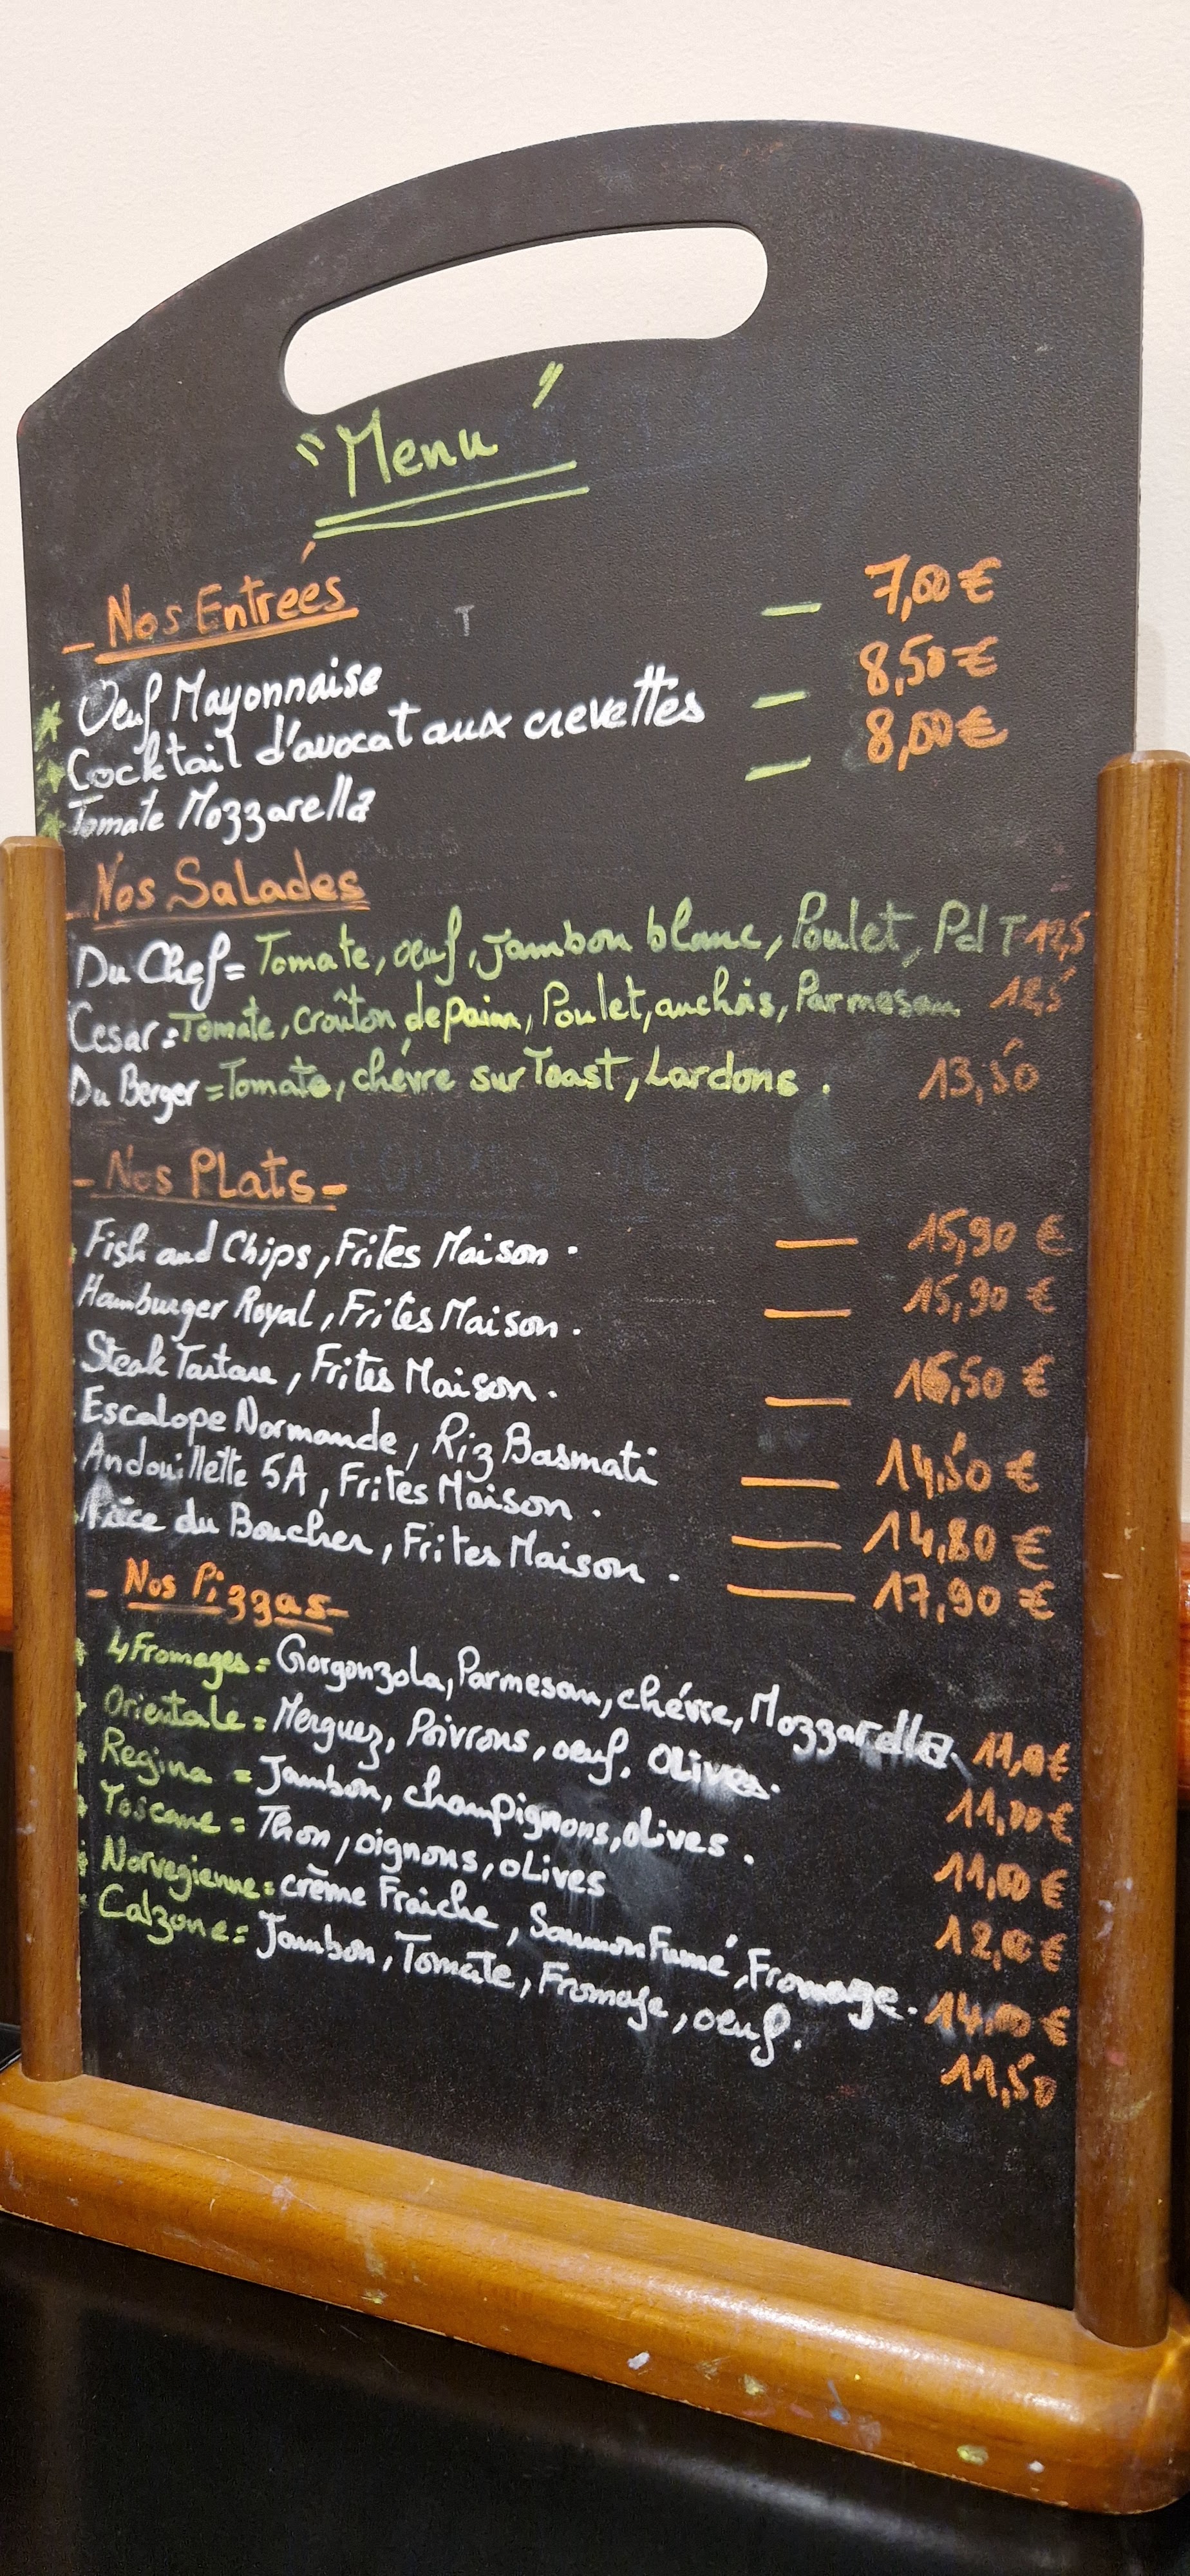 "Menu"
- Nos Entreés
Oeuf Mayonnaise — 7,00€
Cocktail d'avocat aux crevettes — 8,50€
Tomate Mozzarella — 8,00€
- Nos Salades
Du Chef = Tomate, œuf, jambon blanc, Poulet, Pd T 12,5
Cesar = Tomate, croûton de pain, Poulet, anchois, Parmesan 12,5
Du Berger = Tomate, chévre sur Toast, Lardons. 13,50
- Nos Plats -
Fish and Chips, Frites Maison. — 15,90 €
Hamburger Royal, Frites Maison. — 15,90 €
Steak Tartare, Frites Maison. — 16,50 €
Escalope Normande, Riz Basmati — 14,50 €
Andouillette 5A, Frites Maison. — 14,80 €
du Boucher, Frites Maison. — 17,90 €
- Nos Pizzas -
4 Fromages = Gorgonzola, Parmesan, chévre, Mozzarella. 11,00€
Orientale = Merguez, Poivrons, oeuf. Olives. 11,00€
Regina = Jambon, champignons, olives. 11,00€
Toscane = Thon, oignons, olives 12,00€
Norvegienne = crème Fraiche, Saumon Fumé, Fromage. 14,00€
Calzone = Jambon, Tomate, Fromage, oeuf. 11,50